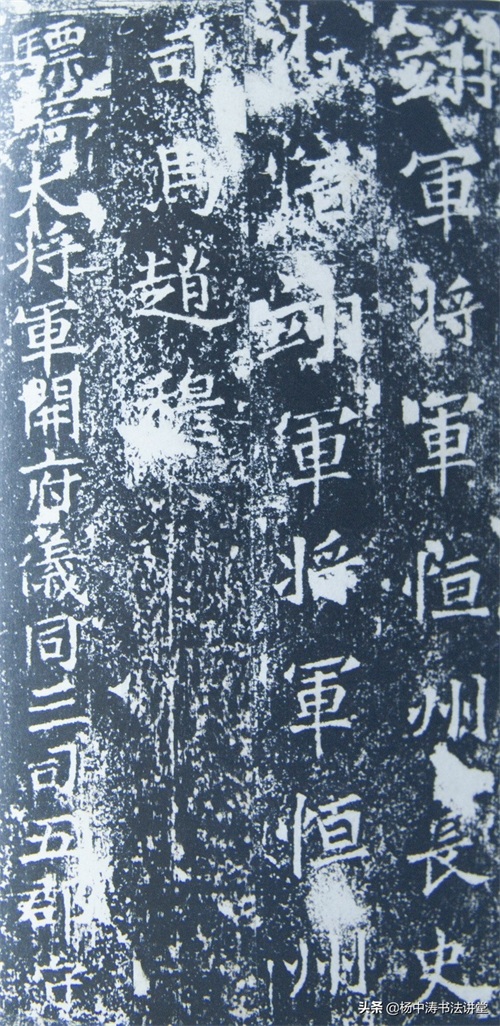 翊軍將軍恒州長史
將翊軍將軍恒州
司馬趙穆
驃騎大將軍開府儀同三司五郡守
头条 @杨中涛书法讲堂